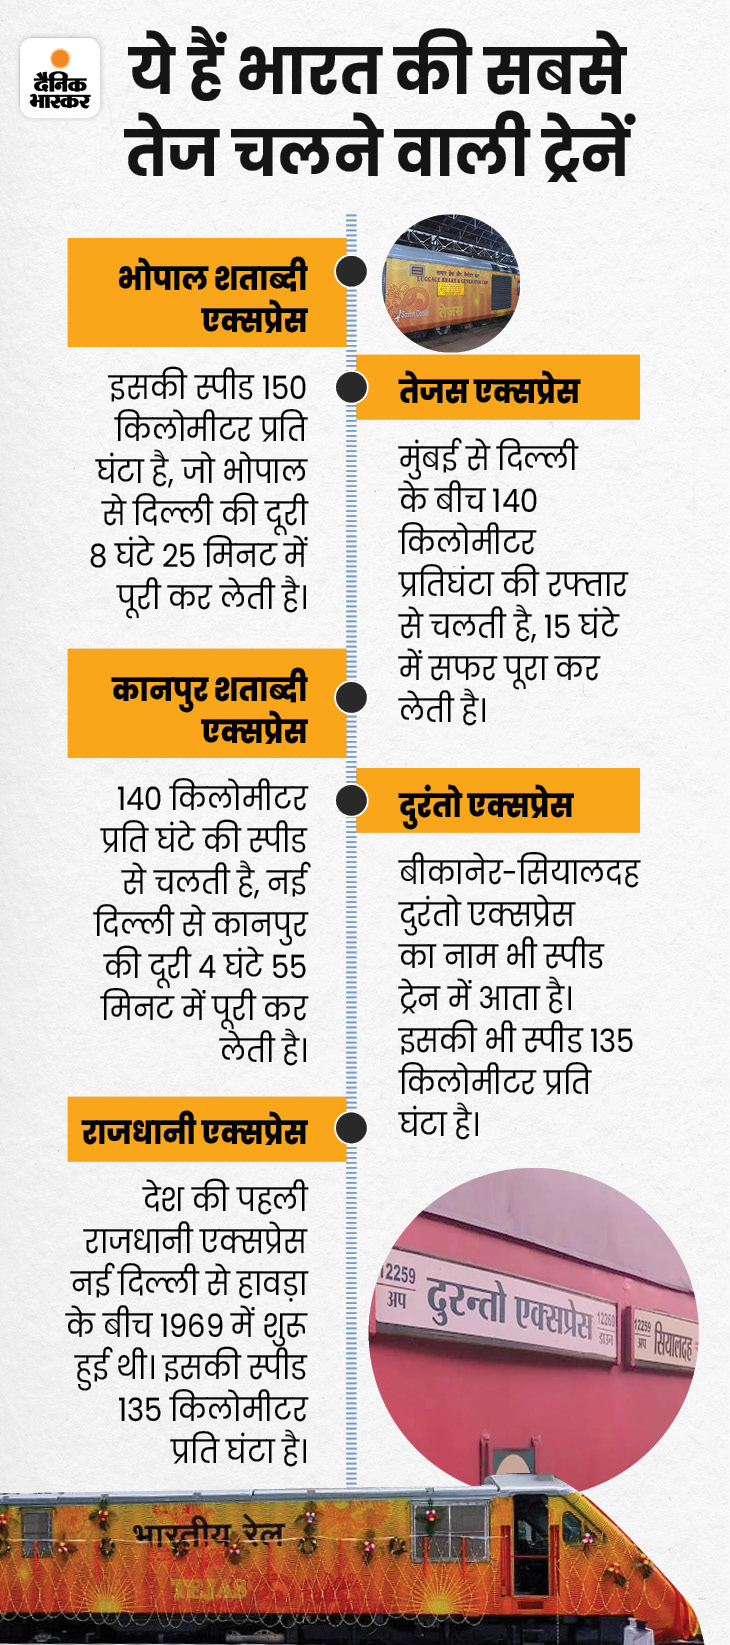 दैनिक
भास्कर
ये हैं भारत की सबसे
तेज चलने वाली ट्रेनें
भोपाल शताब्दी
एक्सप्रेस
इसकी स्पीड 150
किलोमीटर प्रति
घंटा है, जो भोपाल
से दिल्ली की दूरी
8 घंटे 25 मिनट में
पूरी कर लेती है।
LUGGAGE, BRAKE & GENERATOR CAR
तेजस
तेजस एक्सप्रेस
मुंबई से दिल्ली
के बीच 140
किलोमीटर
प्रतिघंटा की रफ्तार
से चलती है, 15 घंटे
में सफर पूरा कर
लेती है।
कानपुर शताब्दी
एक्सप्रेस
140 किलोमीटर
प्रति घंटे की स्पीड
से चलती है, नई
दिल्ली से कानपुर
की दूरी 4 घंटे 55
मिनट में पूरी कर
लेती है।
दुरंतो एक्सप्रेस
बीकानेर-सियालदह
दुरंतो एक्सप्रेस
का नाम भी स्पीड
ट्रेन में आता है।
इसकी भी स्पीड 135
किलोमीटर प्रति
घंटा है।
राजधानी एक्सप्रेस
देश की पहली
राजधानी एक्सप्रेस
नई दिल्ली से हावड़ा
के बीच 1969 में शुरू
हुई थी। इसकी स्पीड
135 किलोमीटर
प्रति घंटा है।
12259
अप
दुरन्तो एक्सप्रेस
12260
डाउन
12259
अप
सियालदह
भारतीय रेल
TEJAS